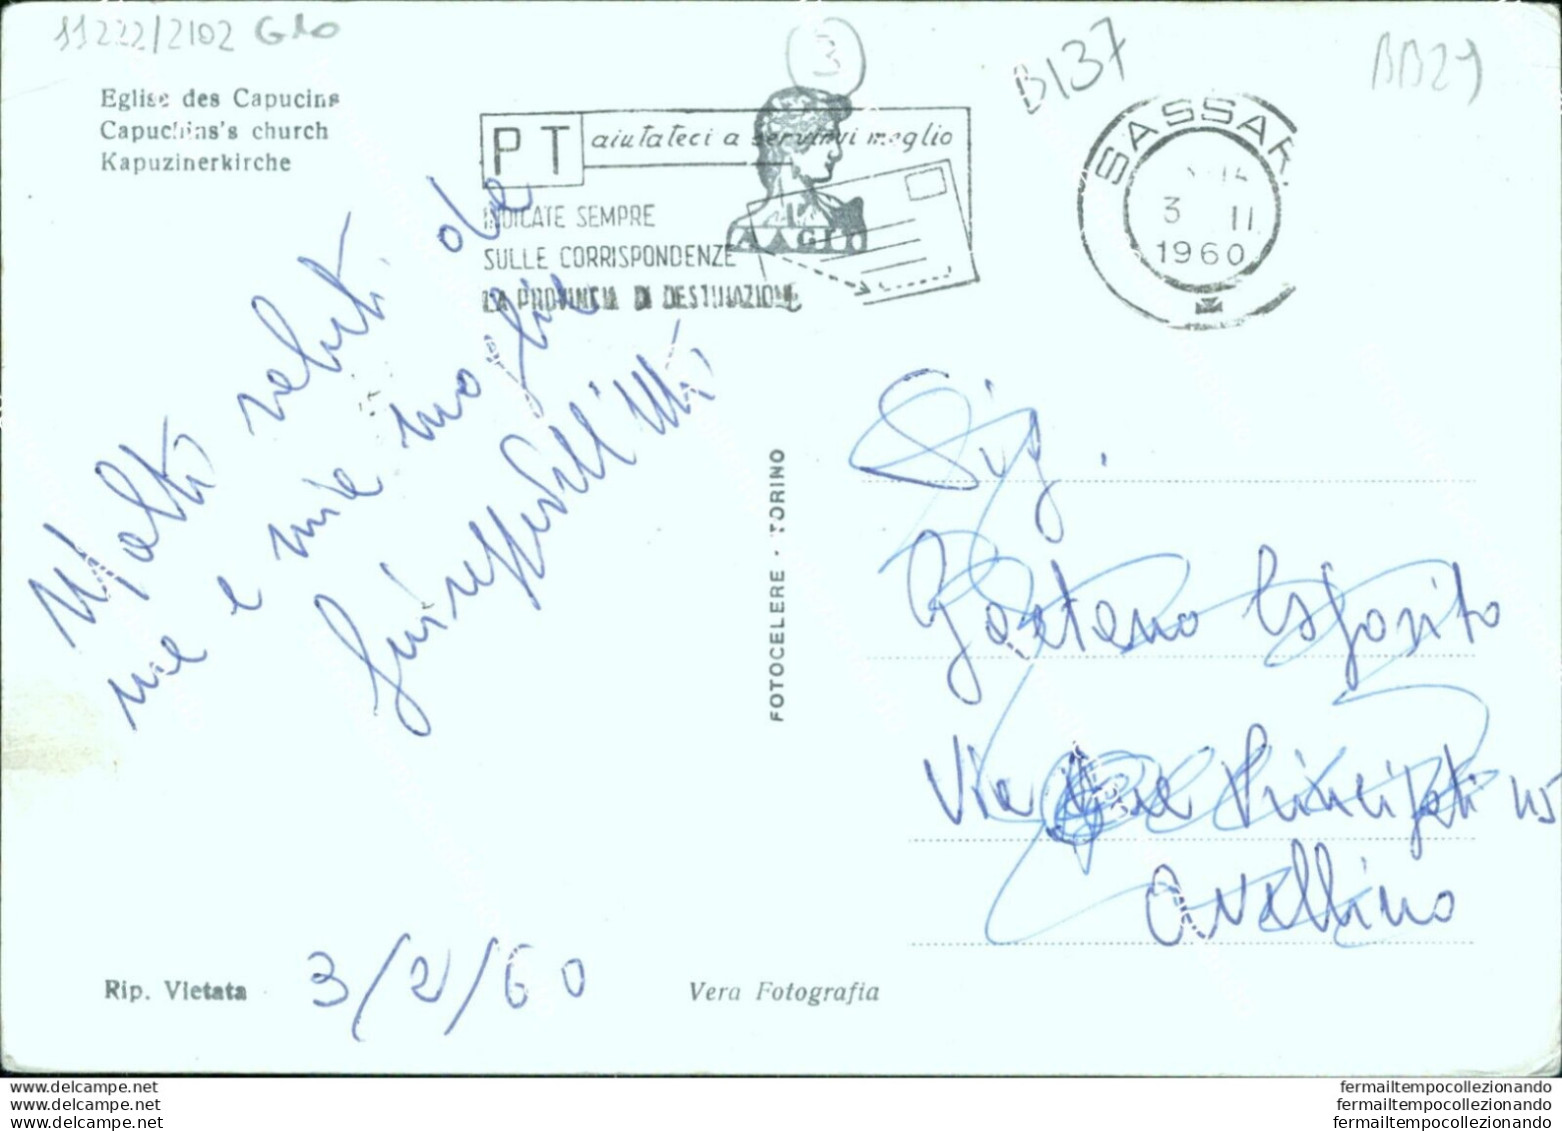 11222/2102 Gto
3
B137
BB29
Eglise des Capucins
Capuchins's church
Kapuzinerkirche
PT aiutateci a servirvi meglio
INDICATE SEMPRE
SULLE CORRISPONDENZE
LA PROVINCIA DI DESTINAZIONE
SASSAR
3 II
1960
Molti saluti da
me e mia moglie
Sig.
Gaetano Esposito
Via Due Principati 15
Avellino
FOTOCELERE - TORINO
3/2/60
Rip. Vietata
Vera Fotografia
www.delcampe.net
www.delcampe.net
www.delcampe.net
fermailtempocollezionando
fermailtempocollezionando
fermailtempocollezionando